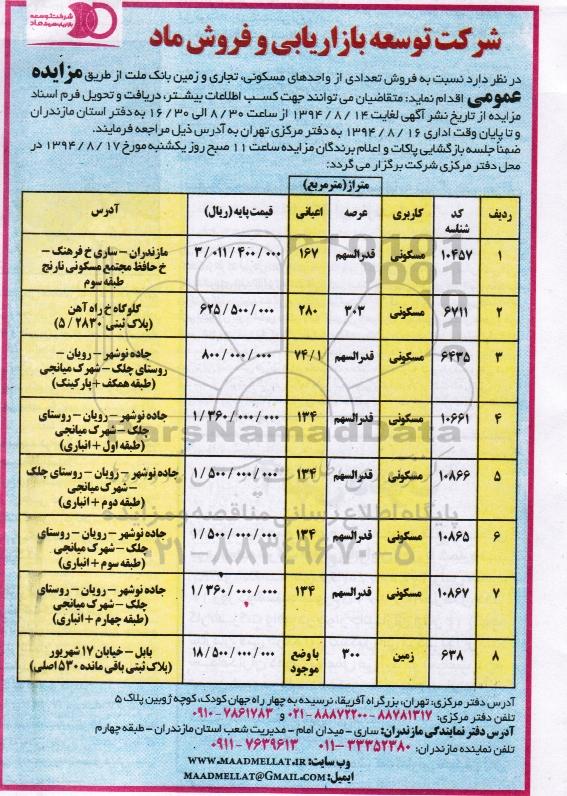 شرکت توسعه بازاریابی و فروش ماد
شرکت توسعه
بازاریابی و فروش ماد
در نظر دارد نسبت به فروش تعدادی از واحدهای مسکونی، تجاری و زمین بانک ملت از طریق مزایده
عمومی اقدام نماید؛ متقاضیان می توانند جهت کسب اطلاعات بیشتر، دریافت و تحویل فرم اسناد
مزایده از تاریخ نشر آگهی لغایت ۱۳۹۴/۸/۱۴ از ساعت ۸/۳۰ الی ۱۶/۳۰ به دفتر استان مازندران
و تا پایان وقت اداری ۱۳۹۴/۸/۱۶ به دفتر مرکزی تهران به آدرس ذیل مراجعه فرمایند.
ضمناً جلسه بازگشایی پاکات و اعلام برندگان مزایده ساعت ۱۱ صبح روز یکشنبه مورخ ۱۳۹۴/۸/۱۷ در
محل دفتر مرکزی شرکت برگزار می گردد:
متراژ (مترمربع)
ردیف کد شناسه کاربری عرصه اعیانی قیمت پایه (ریال) آدرس
۱ ۱۰۴۵۷ مسکونی قدرالسهم ۱۶۷ ۳/۰۱۱/۴۰۰/۰۰۰ مازندران – ساری خ فرهنگ –
خ حافظ مجتمع مسکونی نارنج
طبقه سوم
۲ ۶۷۱۱ مسکونی ۳۰۳ ۲۸۰ ۶۲۵/۵۰۰/۰۰۰ گلوگاه خ راه آهن
(پلاک ثبتی ۲۸۳۰ / ۵)
۳ ۶۴۳۵ مسکونی قدرالسهم ۷۴/۱ ۸۰۰/۰۰۰/۰۰۰ جاده نوشهر – رویان –
روستای چلک – شهرک میانجی
(طبقه همکف + پارکینگ)
۴ ۱۰۶۶۱ مسکونی قدرالسهم ۱۳۴ ۱/۳۶۰/۰۰۰/۰۰۰ جاده نوشهر – رویان – روستای
چلک – شهرک میانجی
(طبقه اول + انباری)
۵ ۱۰۸۶۶ مسکونی قدرالسهم ۱۳۴ ۱/۵۰۰/۰۰۰/۰۰۰ جاده نوشهر – رویان – روستای چلک
– شهرک میانجی
(طبقه دوم + انباری)
۶ ۱۰۸۶۵ مسکونی قدرالسهم ۱۳۴ ۱/۵۰۰/۰۰۰/۰۰۰ جاده نوشهر – رویان – روستای
چلک – شهرک میانجی
(طبقه سوم + انباری)
۷ ۱۰۸۶۷ مسکونی قدرالسهم ۱۳۴ ۱/۳۶۰/۰۰۰/۰۰۰ جاده نوشهر – رویان – روستای
چلک – شهرک میانجی
(طبقه چهارم + انباری)
۸ ۶۳۸ زمین ۳۰۰ با وضع موجود ۱۸/۵۰۰/۰۰۰/۰۰۰ بابل – خیابان ۱۷ شهریور
(پلاک ثبتی باقی مانده ۵۳۰ اصلی)
ParsNamadData
پایگاه اطلاع رسانی مناقصه و مزایده
۰۲۱-۸۸۳۴۹۶۷۰-۵
آدرس دفتر مرکزی: تهران، بزرگراه آفریقا، نرسیده به چهار راه جهان کودک، کوچه ژوبین پلاک ۵
تلفن دفتر مرکزی: ۸۸۷۸۱۳۱۷ - ۸۸۸۷۲۲۰۰-۰۲۱ و ۷۸۶۱۷۸۳-۰۹۱۰
آدرس دفتر نمایندگی مازندران: ساری – میدان امام – مدیریت شعب استان مازندران – طبقه چهارم
تلفن نماینده مازندران: ۳۳۳۵۲۳۸۰ – ۰۱۱ ۷۶۳۹۶۱۳-۰۹۱۱
وب سایت: WWW.MAADMELLAT.IR
ایمیل: MAADMELLAT@GMAIL.COM